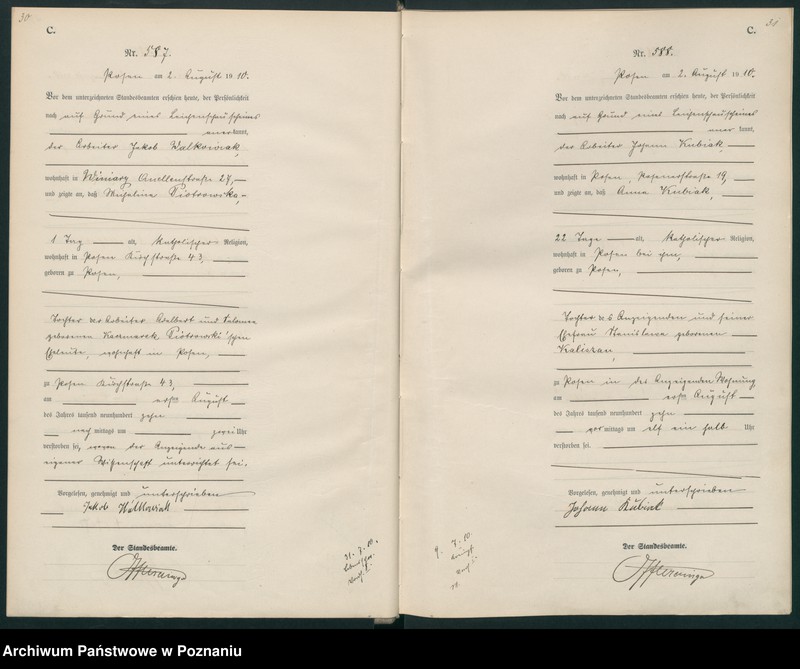 30
C.
Nr. 587.
Posen am 2. August 1910.
Vor dem unterzeichneten Standesbeamten erschien heute, der Persönlichkeit
nach auf Grund eines Leichenschauscheines
anerkannt,
der Arbeiter Jakob Walkowiak,
wohnhaft in Winiary Quellenstraße 27,
und zeigte an, daß Piotrowska,
1 Tag alt, katholischer Religion,
wohnhaft in Posen 43,
geboren zu Posen,
Tochter der Arbeiter Adalbert und Salomea
geborenen Kaczmarek, Piotrowski'schen
Eheleute, wohnhaft in Posen,
zu Posen 43,
am ersten August
des Jahres tausend neunhundert zehn
nachmittags um zwei Uhr
verstorben sei, wovon der Anzeigende aus
eigener Wissenschaft unterrichtet sei.
Vorgelesen, genehmigt und unterschrieben
Jakob Walkowiak
Der Standesbeamte.
C.
Nr. 588.
Posen am 2. August 1910.
Vor dem unterzeichneten Standesbeamten erschien heute, der Persönlichkeit
nach auf Grund eines Leichenschauscheines
anerkannt,
der Arbeiter Johann Kubiak,
wohnhaft in Posen, 19,
und zeigte an, daß Anna Kubiak,
22 Tage alt, katholischer Religion,
wohnhaft in Posen bei ihm,
geboren zu Posen,
Tochter des Anzeigenden und seiner
Ehefrau Stanislawa geborenen
zu Posen in des Anzeigenden Wohnung
am ersten August
des Jahres tausend neunhundert zehn
vormittags um elf ein halb Uhr
verstorben sei.
Vorgelesen, genehmigt und unterschrieben
Johann Kubiak
Der Standesbeamte.
Archiwum Państwowe w Poznaniu